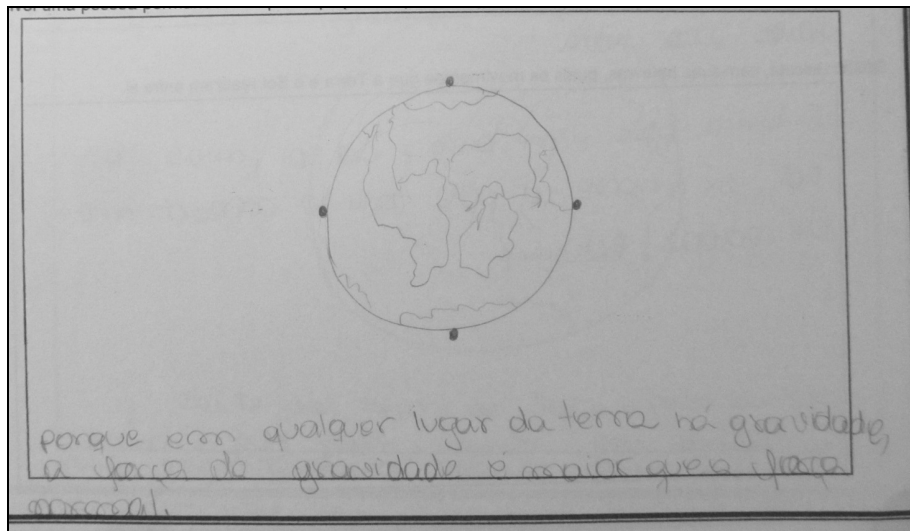 porque em qualquer lugar da terra há gravidade,
a força de gravidade é maior que a força
normal.